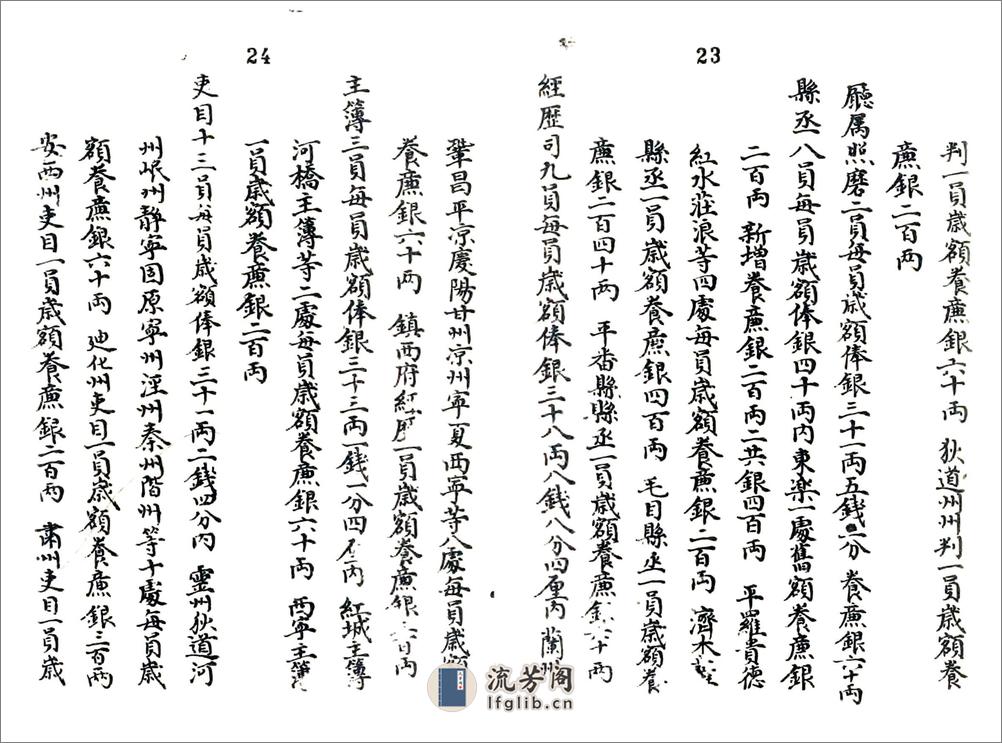 23
判一員歲額養亷銀六十両 狄道州州判一員歲額養
亷銀二百両
廳属照磨二員每員歲額俸銀三十一両五錢二分 養亷銀六十両
縣丞八員每員歲額俸銀四十両内東楽一處舊額養亷銀
二百両 新增養亷銀二百両二共銀四百両 平羅貴德
紅水莊浪等四處每員歲額養亷銀二百両 濟木
縣丞一員歲額養亷銀四百両 毛目縣丞一員歲額養
亷銀二百四十両 平番縣縣丞一員歲額養亷銀六十両
經歷司九員每員歲額俸銀三十八両八錢八分四厘内 蘭州
24
鞏昌平凉慶陽甘州凉州寧夏西寧等八處每員歲額
養亷銀六十両 鎮西府經歷一員歲額養亷銀二百両
主簿三員每員歲額俸銀三十三両一錢一分四厘内 紅城主簿
河橋主簿等二處每員歲額養亷銀六十両 西寧主簿
一員歲額養亷銀二百両
吏目十三員每員歲額俸銀三十一両二錢四分内 靈州狄道河
州岷州靜寧固原寧州涇州秦州階州等十處每員歲
額養亷銀六十両 廸化州吏目一員歲額養亷銀二百両
安西州吏目一員歲額養亷銀二百両 肅州吏目一員歲
流芳阁
lfglib.cn